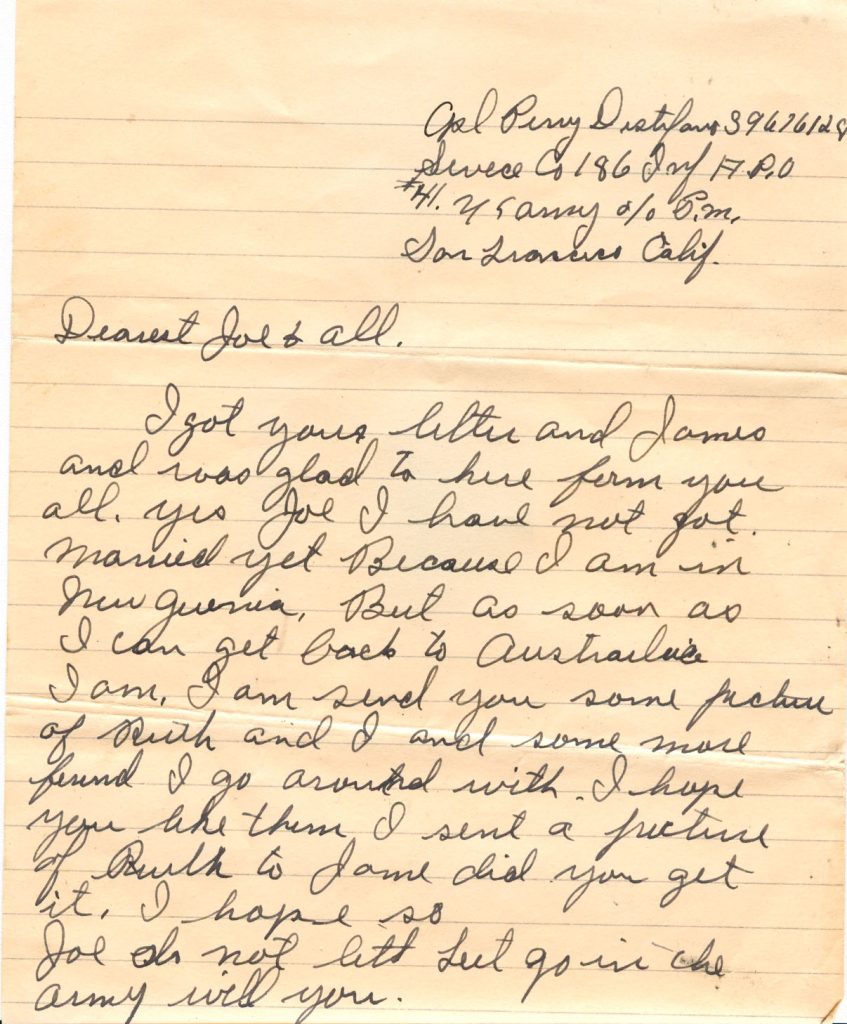 Cpl Perry Distifano 39676128
Servece Co 186 Inf A.P.O
#41. U S army c/o P.m.
San Francisco Calif.
Dearest Joe & all.
I got your letter and James
and was glad to here ferm you
all. yes Joe I have not got.
married yet Because I am in
New Guenia, But as soon as
I can get back to Austrailia
I am. I am send you some picture
of Ruth and I and some more
frind I go around with. I hope
you like them I sent a picture
of Ruth to Jame did you get
it. I hope so
Joe do not lett go in the
army will you.